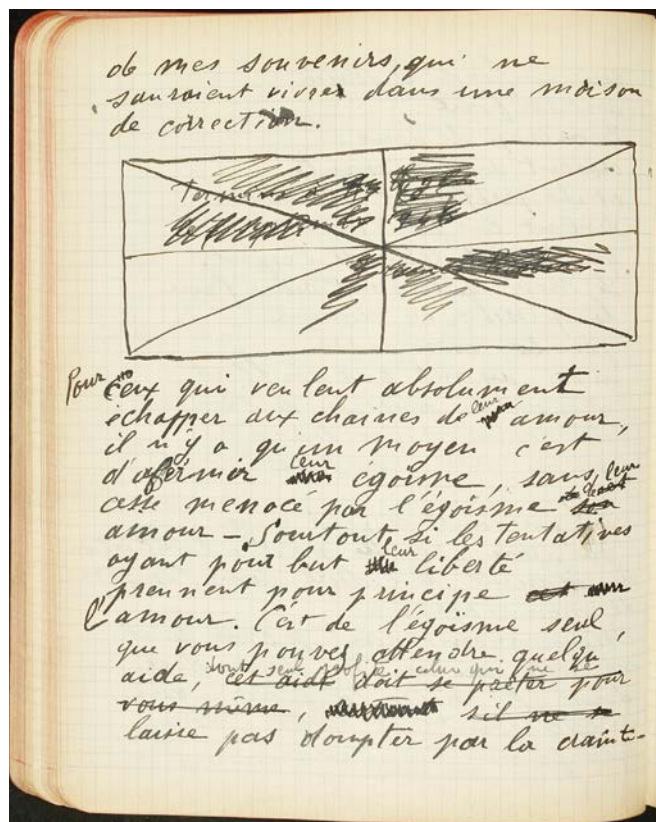 de mes souvenirs, qui ne
sauraient vivre dans une maison
de correction.
Pour ceux qui veulent absolument
échapper aux chaines de leur amour,
il n'y a qu'un moyen c'est
d'aférmir leur égoïsme, sans
cesse menacé par l'égoïsme de leur
amour – Sourtout, si les tentatives
ayant pour but leur liberté
prennent pour principe
l'amour. C'est de l'égoïsme seul
que vous pouvez attendre quelqu'
dont seul profite celui qui ne se
aide, cet aide doit se prêter pour
vous même, s'il ne se
laisse pas dompter par la crainte-